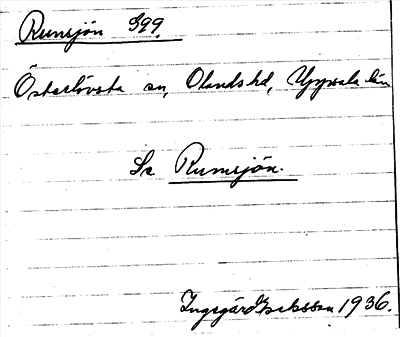 Rumsjön 399.
Österlövsta sn, Olands hd, Uppsala län
Se Rumsjön.
Ingegärd Eriksson 1936.